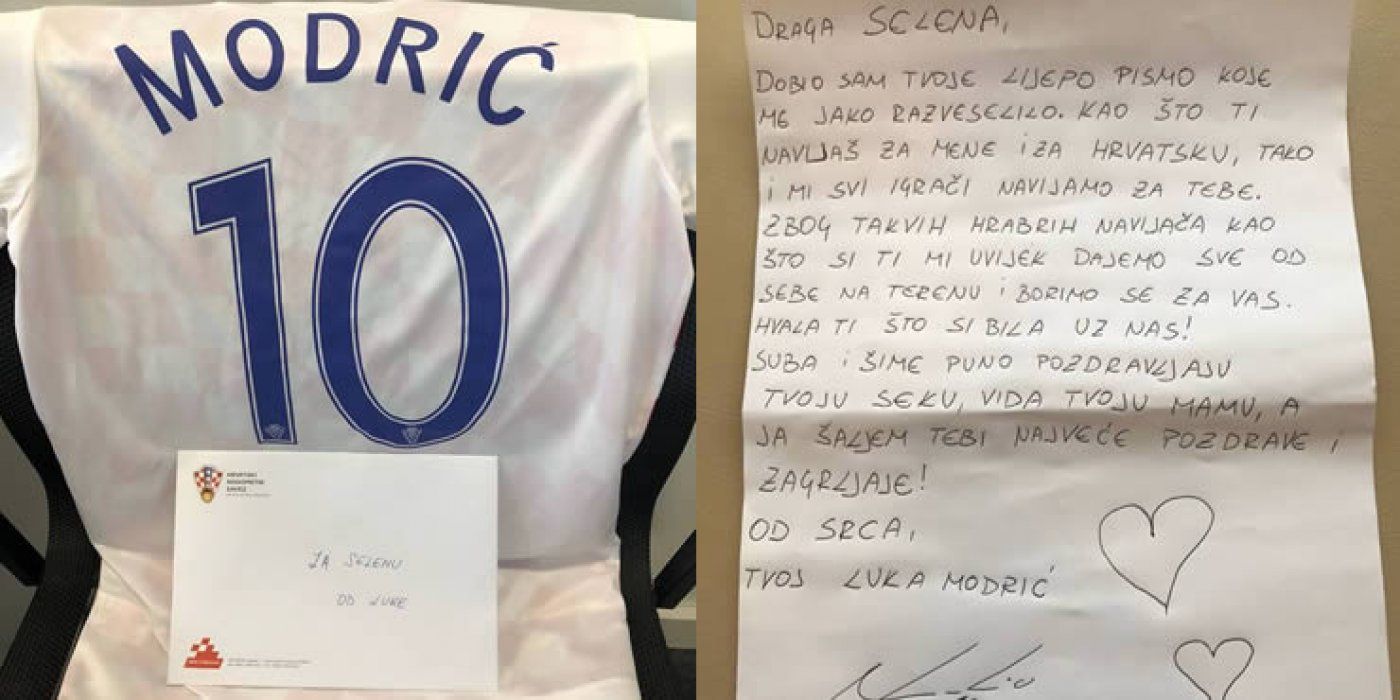 MODRIĆ
10
HRVATSKI
NOGOMETNI
SAVEZ
ZA SELENU
OD LUKE
DRAGA SELENA,
DOBIO SAM TVOJE LIJEPO PISMO KOJE
ME JAKO RAZVESELILO. KAO ŠTO TI
NAVIJAŠ ZA MENE I ZA HRVATSKU, TAKO
I MI SVI IGRAČI NAVIJAMO ZA TEBE.
ZBOG TAKVIH HRABRIH NAVIJAČA KAO
ŠTO SI TI MI UVIJEK DAJEMO SVE OD
SEBE NA TERENU I BORIMO SE ZA VAS.
HVALA TI ŠTO SI BILA UZ NAS!
SUBA I ŠIME PUNO POZDRAVLJAJU
TVOJU SEKU, VIDA TVOJU MAMU, A
JA ŠALJEM TEBI NAJVEĆE POZDRAVE I
ZAGRLJAJE!
OD SRCA,
TVOJ LUKA MODRIĆ